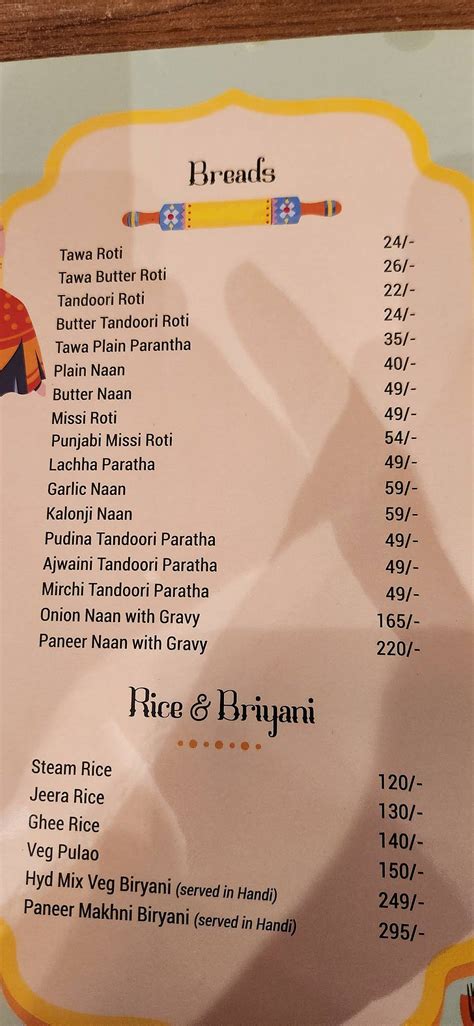 Breads
Tawa Roti 24/-
Tawa Butter Roti 26/-
Tandoori Roti 22/-
Butter Tandoori Roti 24/-
Tawa Plain Parantha 35/-
Plain Naan 40/-
Butter Naan 49/-
Missi Roti 49/-
Punjabi Missi Roti 54/-
Lachha Paratha 49/-
Garlic Naan 59/-
Kalonji Naan 59/-
Pudina Tandoori Paratha 49/-
Ajwaini Tandoori Paratha 49/-
Mirchi Tandoori Paratha 49/-
Onion Naan with Gravy 165/-
Paneer Naan with Gravy 220/-
Rice & Briyani
Steam Rice 120/-
Jeera Rice 130/-
Ghee Rice 140/-
Veg Pulao 150/-
Hyd Mix Veg Biryani (served in Handi) 249/-
Paneer Makhni Biryani (served in Handi) 295/-